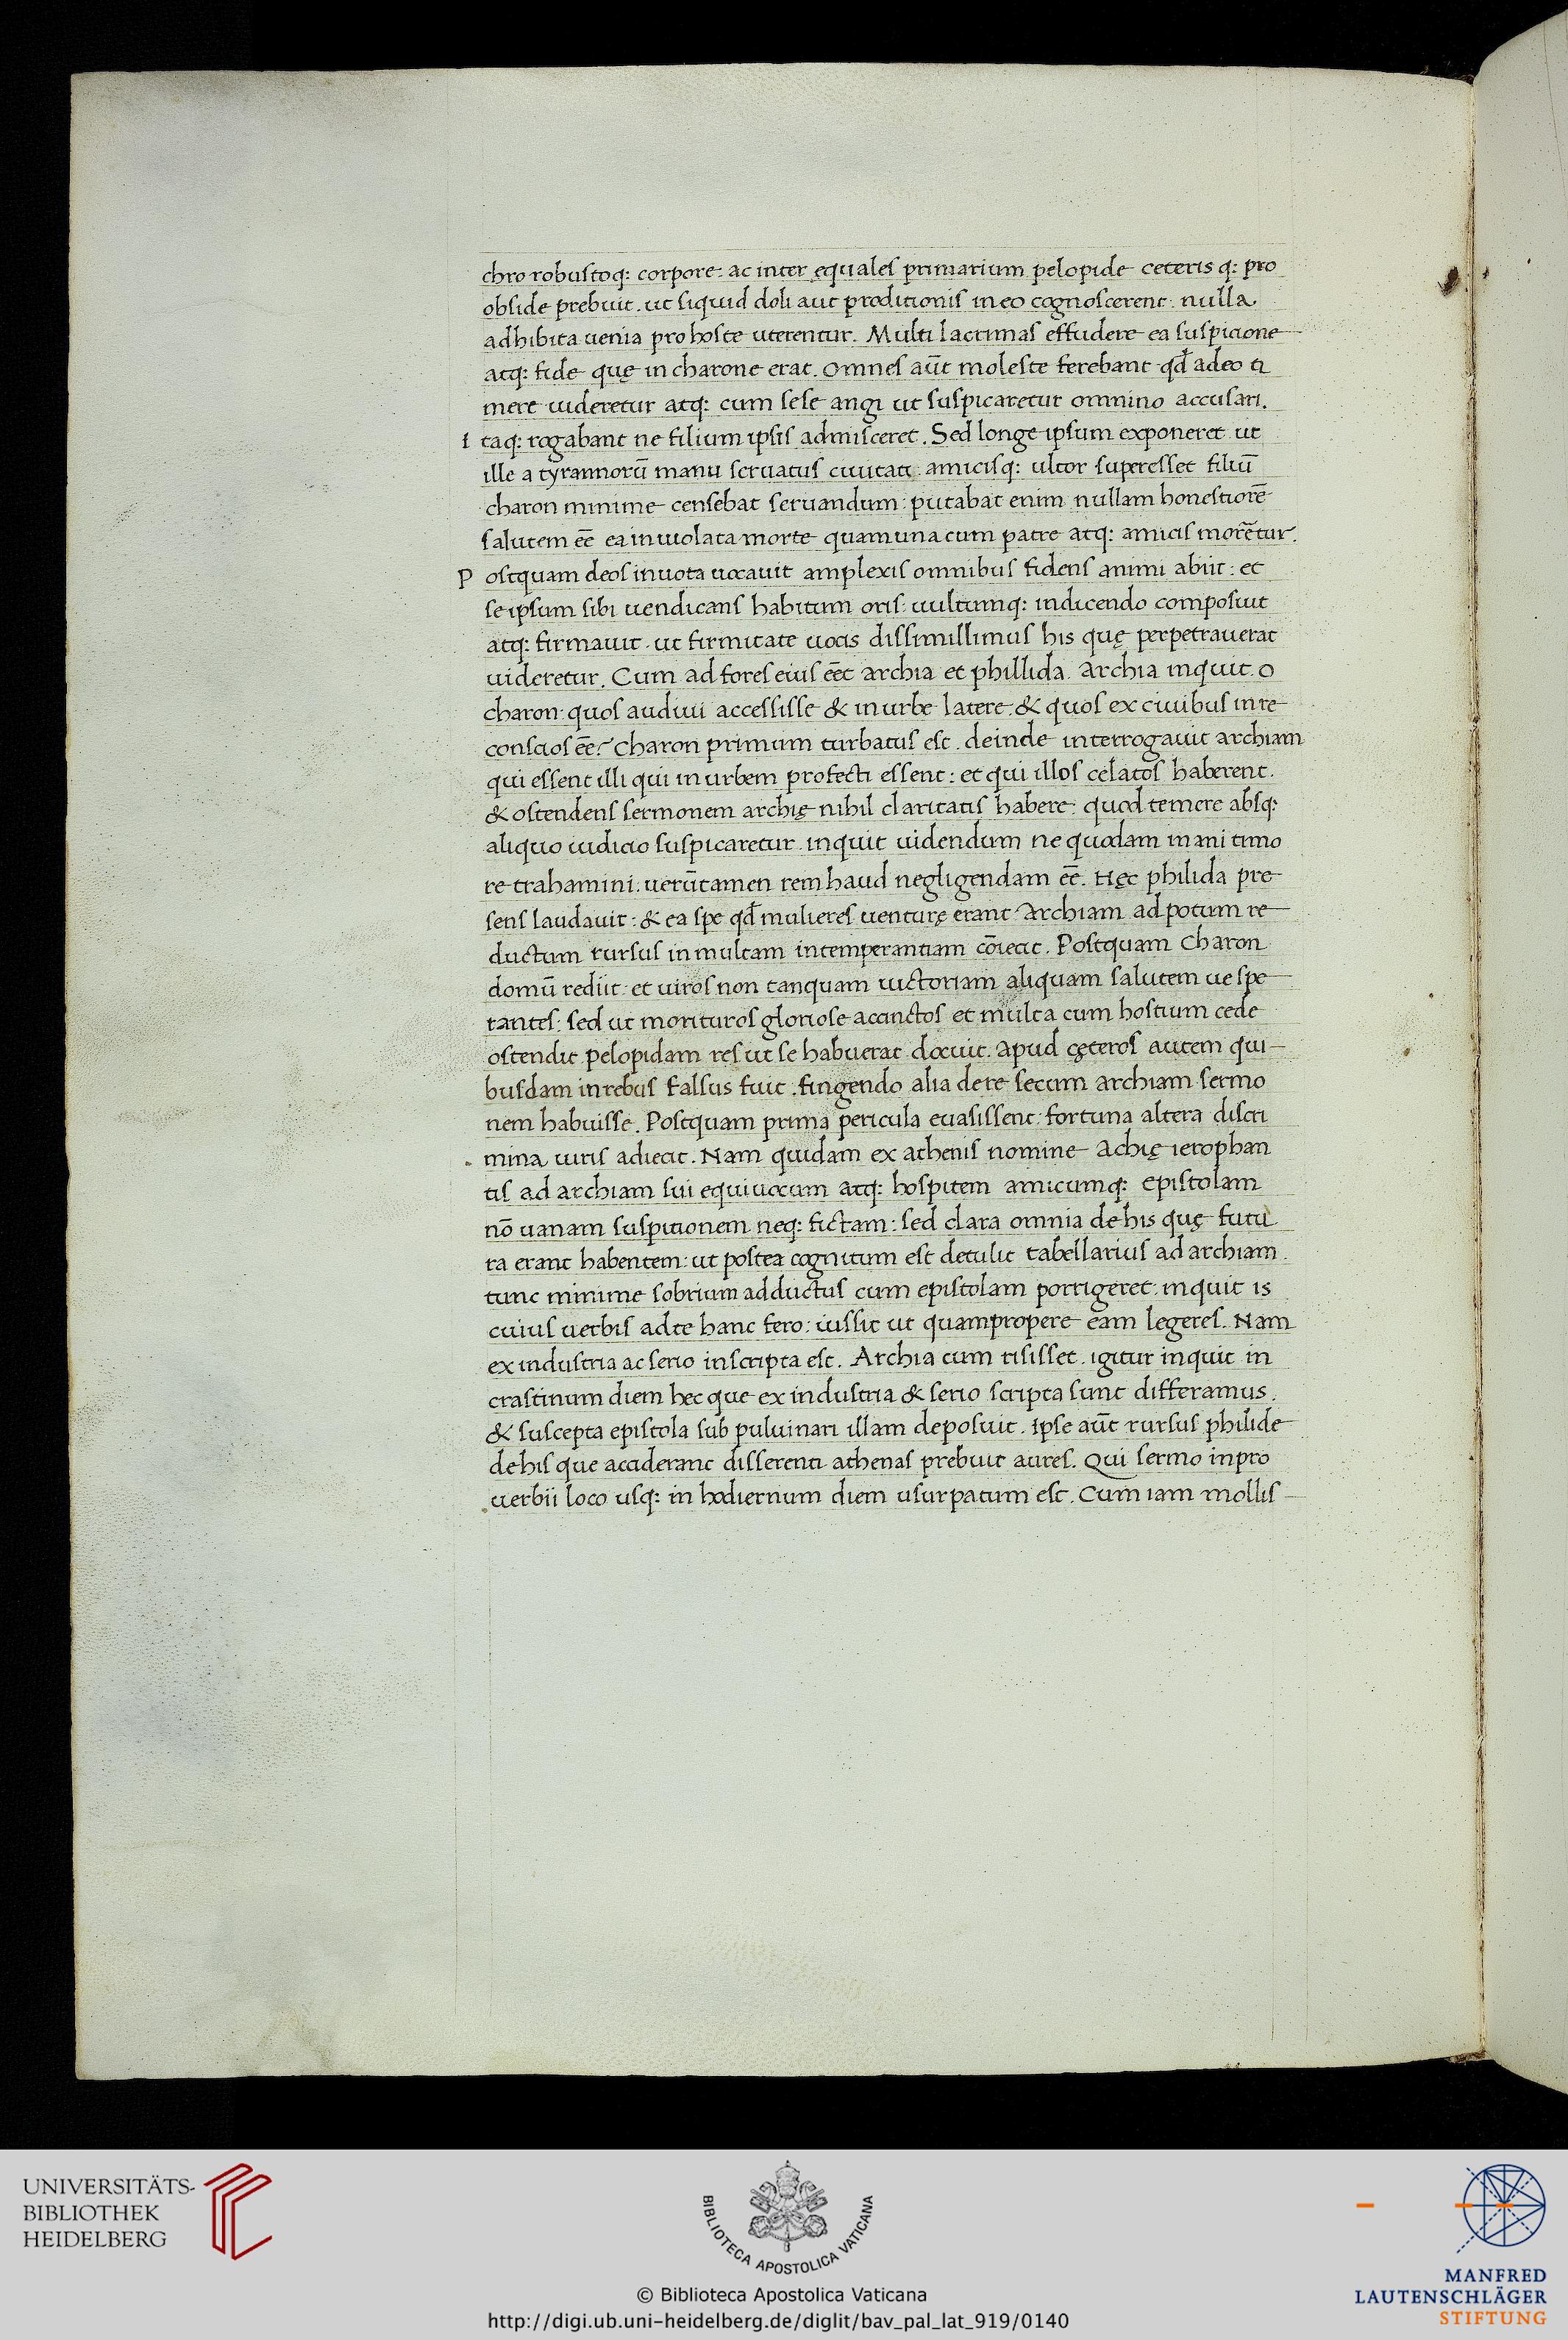 chro robustoq: corpore: ac inter ęquales primarium pelopide ceteris q: pro
obside prebuit. ut siquid doli aut proditionis in eo cognoscerent: nulla
adhibita uenia pro hoste uterentur. Multi lacrimas effudere ea suspicione
atq: fide quę in charone erat. Omnes aūt moleste ferebant qđ adeo ti
mere uideretur atq: cum sese angi ut suspicaretur omnino accusari.
I taq: rogabant ne filium ipsis admisceret. Sed longe ipsum exponeret ut
ille a tyrannorū manu seruatus ciuitati amicisq: ultor superesset filiū
charon minime censebat seruandum: putabat enim nullam honestiorē
salutem eē ea inuiolata morte quam una cum patre atq: amicis morēetur.
P ostquam deos in uota uocauit amplexis omnibus fidens animi abiit: et
se ipsum sibi uendicans habitum oris: uultumq: indicendo composuit
atq: firmauit. ut firmitate uocis dissimillimus his quę perpetrauerat
uideretur. Cum ad fores eius eēt archia et phillida. Archia inquit. O
charon quos audiui accessisse & in urbe latere: & quos ex ciuibus in re
conscios eē? Charon primum turbatus est. deinde interrogauit archiam
qui essent illi qui in urbem profecti essent: et qui illos celatos haberent.
& ostendens sermonem archię nihil claritatis habere: quod temere absq:
aliquo iudicio suspicaretur. inquit uidendum ne quodam inani timo
re trahamini: uerūtamen rem haud negligendam eē. Hęc philida pre
sens laudauit: & ea spe qđ mulieres uenturę erant Archiam ad potum re
ductum rursus in multam intemperantiam cōiecit. Postquam Charon
domū rediit: et uiros non tanquam uictoriam aliquam salutem ue spe
rantes: sed ut morituros gloriose accinctos et multa cum hostium cede
ostendit pelopidam res ut se habuerat docuit. Apud cęteros autem qui
busdam in rebus falsus fuit. fingendo alia de re secum archiam sermo
nem habuisse. Postquam prima pericula euasissent: fortuna altera discri
mina uiris adiecit. Nam quidam ex athenis nomine Achię ierophan
tis ad archiam sui equiuocum atq: hospitem amicumq: epistolam
nō uanam suspitionem neq: fictam: sed clara omnia de his quę futu
ra erant habentem: ut postea cognitum est detulit tabellarius ad archiam
tunc minime sobrium adductus cum epistolam porrigeret: inquit is
cuius uerbis ad te hanc fero: iussit ut quampropere eam legeres. Nam
ex industria ac serio inscripta est. Archia cum risisset. igitur inquit in
crastinum diem hec que ex industria & serio scripta sunt differamus.
& suscepta epistola sub puluinari illam deposuit. ipse aūt rursus philide
de his que acciderant disserenti athenas prebuit aures. Qui sermo in pro
uerbii loco usq: in hodiernum diem usurpatum est. Cum iam mollis
UNIVERSITÄTS-
BIBLIOTHEK
HEIDELBERG
BIBLIOTECA APOSTOLICA VATICANA
© Biblioteca Apostolica Vaticana
http://digi.ub.uni-heidelberg.de/diglit/bav_pal_lat_919/0140
MANFRED
LAUTENSCHLÄGER
STIFTUNG